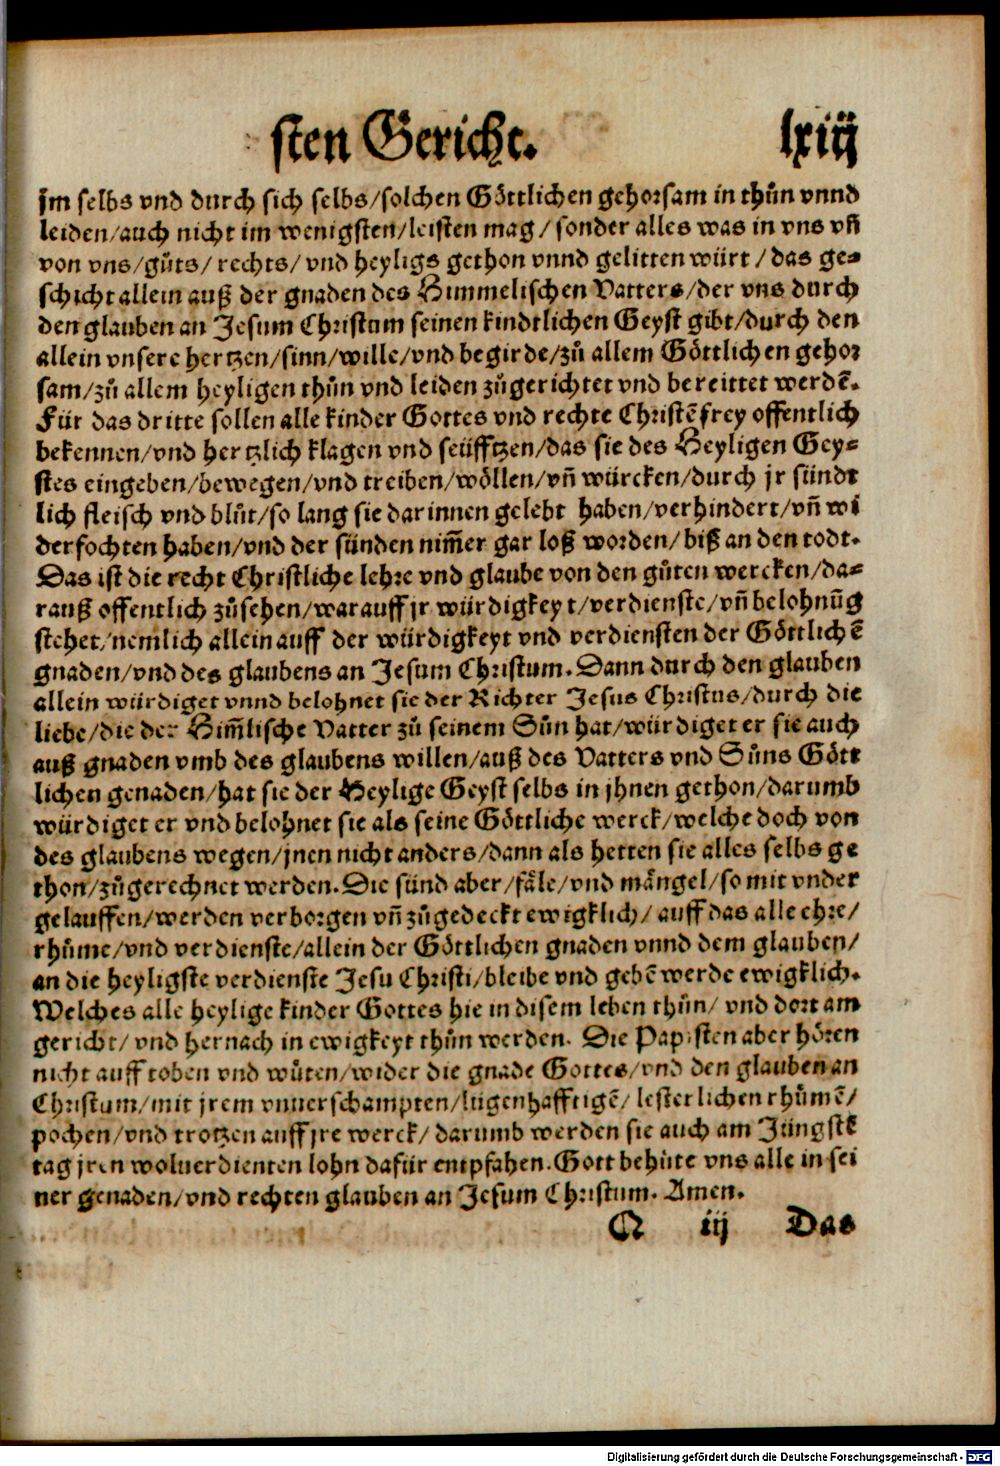 sten Gericht. lxiij
jm selbs vnd durch sich selbs/solchen Göttlichen gehorsam in thůn vnnd
leiden/auch nicht im wenigsten/leisten mag/ sonder alles was in vns vñ
von vns/gůts/ rechts/ vnd heyligs gethon vnnd gelitten würt/ das ge-
schicht allein auß der gnaden des Himmelischen Vatters/der vns durch
den glauben an Jesum Christum seinen kindtlichen Geyst gibt/durch den
allein vnsere hertzen/sinn/wille/vnd begirde/zů allem Göttlichen gehor
sam/zů allem heyligen thůn vnd leiden zůgerichtet vnd bereittet werdẽ.
Für das dritte sollen alle kinder Gottes vnd rechte Christẽ frey offentlich
bekennen/vnd hertzlich klagen vnd seüfftzen/das sie des Heyligen Gey-
stes eingeben/bewegen/vnd treiben/wöllen/vñ würcken/durch jr sündt
lich fleisch vnd blůt/so lang sie darinnen gelebt haben/verhindert/vñ wi
derfochten haben/vnd der sünden nim̃er gar loß worden/biß an den todt.
Das ist die recht Christliche lehre vnd glaube von den gůten wercken/da-
rauß offentlich zůsehen/warauff jr würdigkeyt/verdienste/vñ belohnũg
stehet/nemlich allein auff der würdigkeyt vnd verdiensten der Göttlichẽ
gnaden/vnd des glaubens an Jesum Christum. Dann durch den glauben
allein würdiget vnnd belohnet sie der Richter Jesus Christus/durch die
liebe/die der Him̃lische Vatter zů seinem Sůn hat/würdiget er sie auch
auß gnaden vmb des glaubens willen/auß des Vatters vnd Sůns Gött
lichen genaden/hat sie der Heylige Geyst selbs in jhnen gethon/darumb
würdiget er vnd belohnet sie als seine Göttliche werck/welche doch von
des glaubens wegen/jnen nicht anders/dann als hetten sie alles selbs ge
thon/zůgerechnet werden. Die sünd aber/fäle/vnd mängel/so mit vnder
gelauffen/werden verborgen vñ zůgedeckt ewigklich/ auff das alle ehre/
rhůme/vnd verdienste/allein der Göttlichen gnaden vnnd dem glauben/
an die heyligste verdienste Jesu Christi/bleibe vnd gebẽ werde ewigklich.
Welches alle heylige kinder Gottes hie in disem leben thůn/ vnd dort am
gericht/ vnd hernach in ewigkeyt thůn werden. Die Papisten aber hören
nicht auff toben vnd wůten/wider die gnade Gottes/vnd den glauben an
Christum/mit jrem vnuerschampten/lügenhafftigẽ/ lesterlichen rhůmẽ/
pochen/vnd trotzen auff jre werck/ darumb werden sie auch am Jüngstẽ
tag jren woluerdienten lohn dafür entpfahen. Gott behüte vns alle in sei
ner genaden/vnd rechten glauben an Jesum Christum. Amen.
Q iij Das
Digitalisierung gefördert durch die Deutsche Forschungsgemeinschaft - DFG